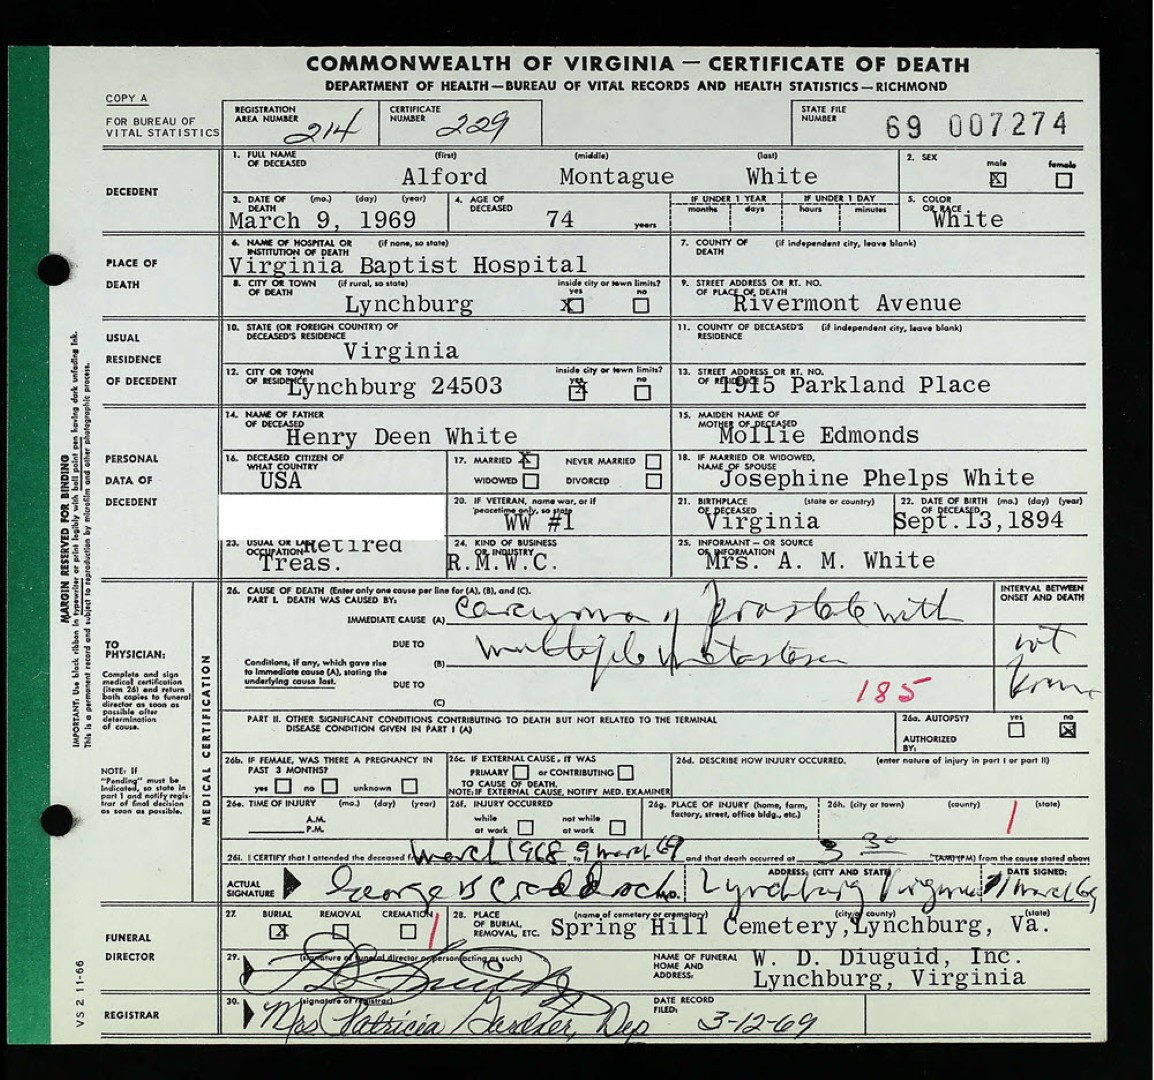 COMMONWEALTH OF VIRGINIA — CERTIFICATE OF DEATH
DEPARTMENT OF HEALTH—BUREAU OF VITAL RECORDS AND HEALTH STATISTICS—RICHMOND
COPY A
FOR BUREAU OF VITAL STATISTICS
REGISTRATION AREA NUMBER 214
CERTIFICATE NUMBER 229
STATE FILE NUMBER 69 007274
DECEDENT
1. FULL NAME OF DECEASED (first) (middle) (last)
Alford Montague White
2. SEX male X female
3. DATE OF DEATH (mo.) (day) (year)
March 9, 1969
4. AGE OF DECEASED 74 years
IF UNDER 1 YEAR months days
IF UNDER 1 DAY hours minutes
5. COLOR OR RACE White
PLACE OF DEATH
6. NAME OF HOSPITAL OR INSTITUTION OF DEATH (if none, so state)
Virginia Baptist Hospital
7. COUNTY OF DEATH (if independent city, leave blank)
8. CITY OR TOWN OF DEATH (if rural, so state)
Lynchburg
inside city or town limits? yes X no
9. STREET ADDRESS OR RT. NO. OF PLACE OF DEATH
Rivermont Avenue
USUAL RESIDENCE OF DECEDENT
10. STATE (OR FOREIGN COUNTRY) OF DECEASED'S RESIDENCE
Virginia
11. COUNTY OF DECEASED'S RESIDENCE (if independent city, leave blank)
12. CITY OR TOWN OF RESIDENCE
Lynchburg 24503
inside city or town limits? yes X no
13. STREET ADDRESS OR RT. NO. OF RESIDENCE
1915 Parkland Place
PERSONAL DATA OF DECEDENT
14. NAME OF FATHER OF DECEASED
Henry Deen White
15. MAIDEN NAME OF MOTHER OF DECEASED
Mollie Edmonds
16. DECEASED CITIZEN OF WHAT COUNTRY
USA
17. MARRIED X NEVER MARRIED
WIDOWED DIVORCED
18. IF MARRIED OR WIDOWED, NAME OF SPOUSE
Josephine Phelps White
20. IF VETERAN, name war, or if peacetime only, so state
WW #1
21. BIRTHPLACE OF DECEASED (state or country)
Virginia
22. DATE OF BIRTH (mo.) (day) (year)
Sept.13,1894
23. USUAL OR LAST OCCUPATION Retired
Treas.
24. KIND OF BUSINESS OR INDUSTRY
R.M.W.C.
25. INFORMANT — OR SOURCE OF INFORMATION
Mrs. A. M. White
MARGIN RESERVED FOR BINDING
IMPORTANT: Use black ribbon in typewriter or print legibly with ball point pen having dark unfading ink.
This is a permanent record and subject to reproduction by microfilm and other photographic process.
TO PHYSICIAN:
Complete and sign medical certification (item 26) and return both copies to funeral director as soon as possible after determination of cause.
NOTE: If "Pending" must be indicated, so state in part I and notify registrar of final decision as soon as possible.
MEDICAL CERTIFICATION
26. CAUSE OF DEATH (Enter only one cause per line for (A), (B), and (C).
PART I. DEATH WAS CAUSED BY:
INTERVAL BETWEEN ONSET AND DEATH
IMMEDIATE CAUSE (A) carcinoma of prostate with
DUE TO
(B) multiple metastases
not known
Conditions, if any, which gave rise to immediate cause (A), stating the underlying cause last.
DUE TO
(C)
185
PART II. OTHER SIGNIFICANT CONDITIONS CONTRIBUTING TO DEATH BUT NOT RELATED TO THE TERMINAL DISEASE CONDITION GIVEN IN PART I (A)
26a. AUTOPSY? yes no X
AUTHORIZED BY:
26b. IF FEMALE, WAS THERE A PREGNANCY IN PAST 3 MONTHS?
yes no unknown
26c. IF EXTERNAL CAUSE, IT WAS
PRIMARY or CONTRIBUTING
TO CAUSE OF DEATH.
NOTE: IF EXTERNAL CAUSE, NOTIFY MED. EXAMINER
26d. DESCRIBE HOW INJURY OCCURRED. (enter nature of injury in part I or part II)
26e. TIME OF INJURY (mo.) (day) (year)
A.M.
P.M.
26f. INJURY OCCURRED
while at work not while at work
26g. PLACE OF INJURY (home, farm, factory, street, office bldg., etc.)
26h. (city or town) (county) (state)
26i. I CERTIFY that I attended the deceased from March 1968 to 9 March 69 and that death occurred at 3 30 (AM) (PM) from the cause stated above
ACTUAL SIGNATURE George B Craddock M.D.
ADDRESS: (CITY AND STATE) Lynchburg Virginia
DATE SIGNED: 11 March 69
FUNERAL DIRECTOR
27. BURIAL X REMOVAL CREMATION
28. PLACE OF BURIAL, REMOVAL, ETC. (name of cemetery or crematory) (city or county) (state)
Spring Hill Cemetery,Lynchburg, Va.
29. (signature of funeral director or person acting as such)
NAME OF FUNERAL HOME AND ADDRESS:
W. D. Diuguid, Inc.
Lynchburg, Virginia
REGISTRAR
30. (signature of registrar)
Mrs Patricia Gardner, Dep
DATE RECORD FILED: 3-12-69
VS 2 11-66